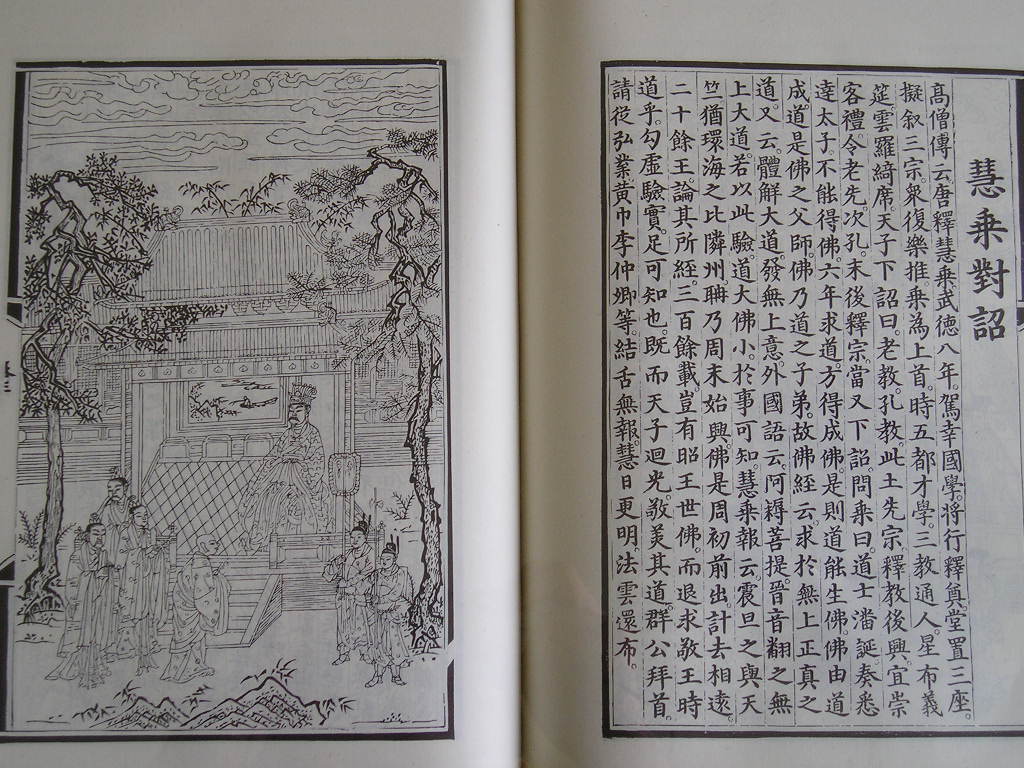 慧乘對詔
高僧傳云。唐釋慧乘。武德八年。駕幸國學。將行釋奠。堂置三座。
擬叙三宗。衆復樂推。乘為上首。時五都才學。三教通人。星布義
筵。雲羅綺席。天子下詔曰。老教。孔教。此土先宗。釋教後興。宜崇
客禮。令老先。次孔。末後釋宗。當又下詔。問乘曰。道士潘誕。奏悉
達太子。不能得佛。六年求道。方得成佛。是則道能生佛。佛由道
成。道是佛之父師。佛乃道之子弟。故佛經云。求於無上正真之
道。又云。體解大道。發無上意。外國語云。阿耨菩提。晉音翻之無
上大道。若以此驗。道大佛小。於事可知。慧乘報云。震旦之與天
竺。猶環海之比隣州。聃乃周末始興。佛是周初前出。計去相遠。
二十餘王。論其所經。三百餘載。豈有昭王世佛。而退求敬王時
道乎。勾虛驗實。足可知也。既而天子迴光。敬美其道。群公拜首。
請從弘業。黄巾李仲卿等。結舌無報。慧日更明。法雲還布。